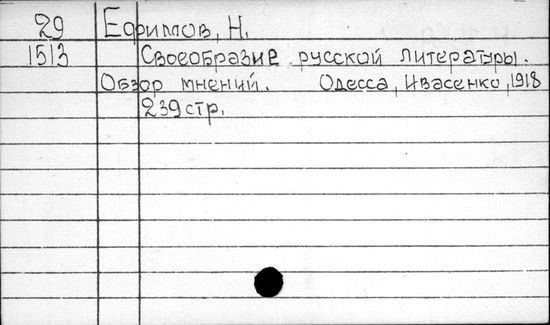 29 Ефимов, Н.
1513 Своеобразие русской литературы.
Обзор мнений. Одесса, Ивасенко, 1918
239 стр.